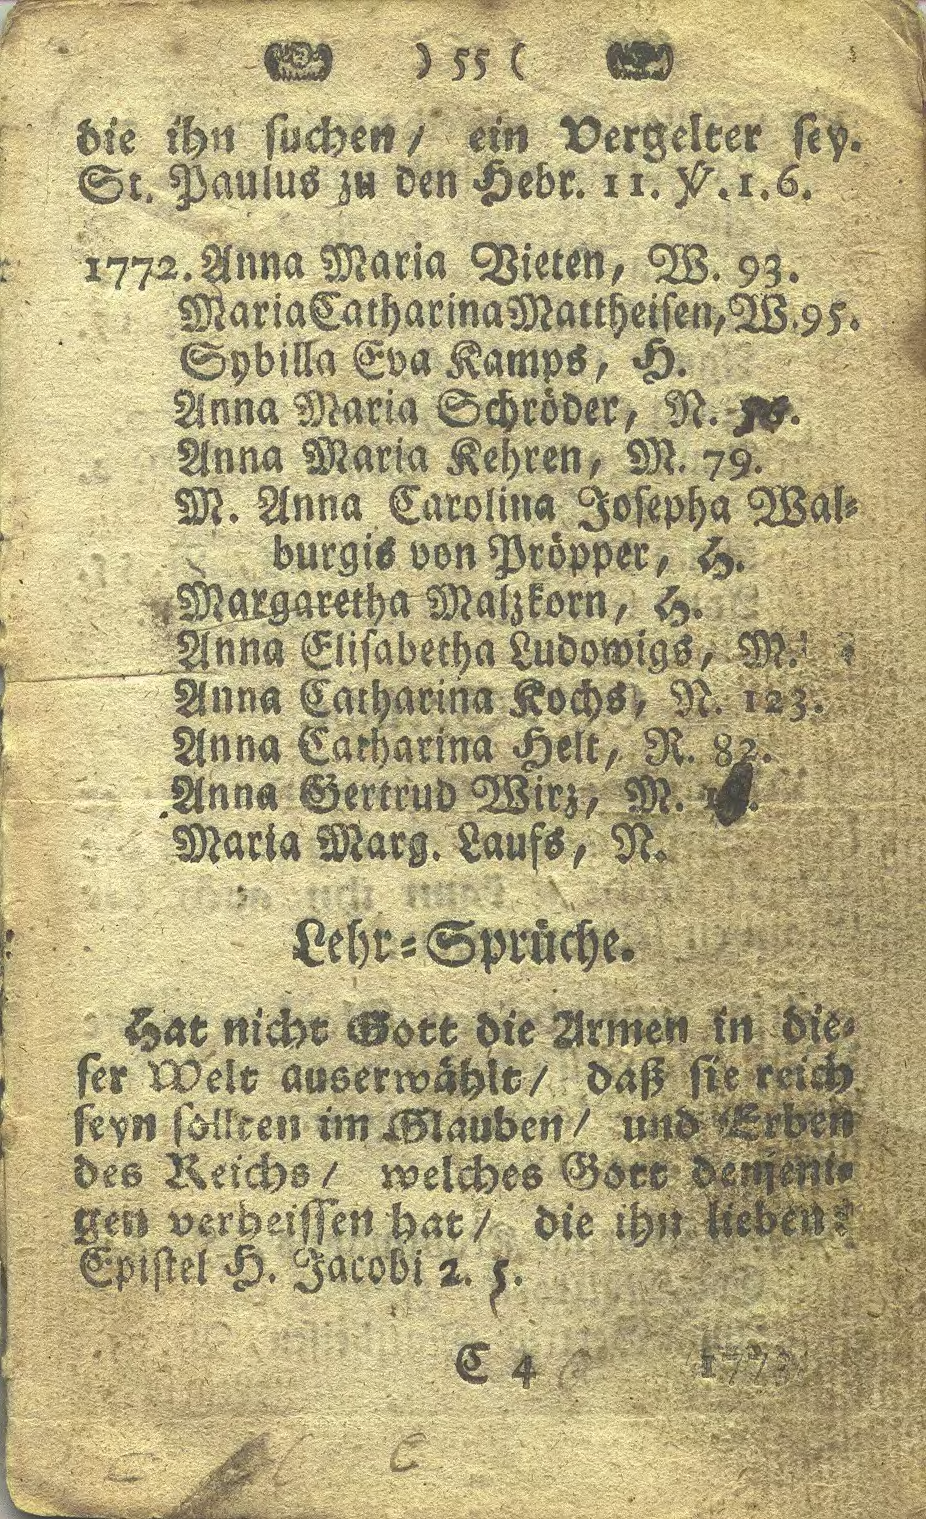 ) 55 (
die ihn suchen / ein Vergelter sey.
St. Paulus zu den Hebr. 11. V. 1. 6.
1772. Anna Maria Vieten, W. 93.
Maria Catharina Mattheisen, W. 95.
Sybilla Eva Kamps, H.
Anna Maria Schröder, N.
Anna Maria Kehren, M. 79.
M. Anna Carolina Josepha Wal-
burgis von Pröpper, H.
Margaretha Malzkorn, H.
Anna Elisabetha Ludowigs, M.
Anna Catharina Kochs, N. 123.
Anna Catharina Helt, R. 82.
Anna Gertrud Wirz, M.
Maria Marg. Laufs, N.
Lehr-Sprüche.
Hat nicht Gott die Armen in die-
ser Welt auserwählt / daß sie reich
seyn sollten im Glauben / und Erben
des Reichs / welches Gott denjeni-
gen verheissen hat / die ihn lieben?
Epistel H. Jacobi 2. 5.
C 4 1773